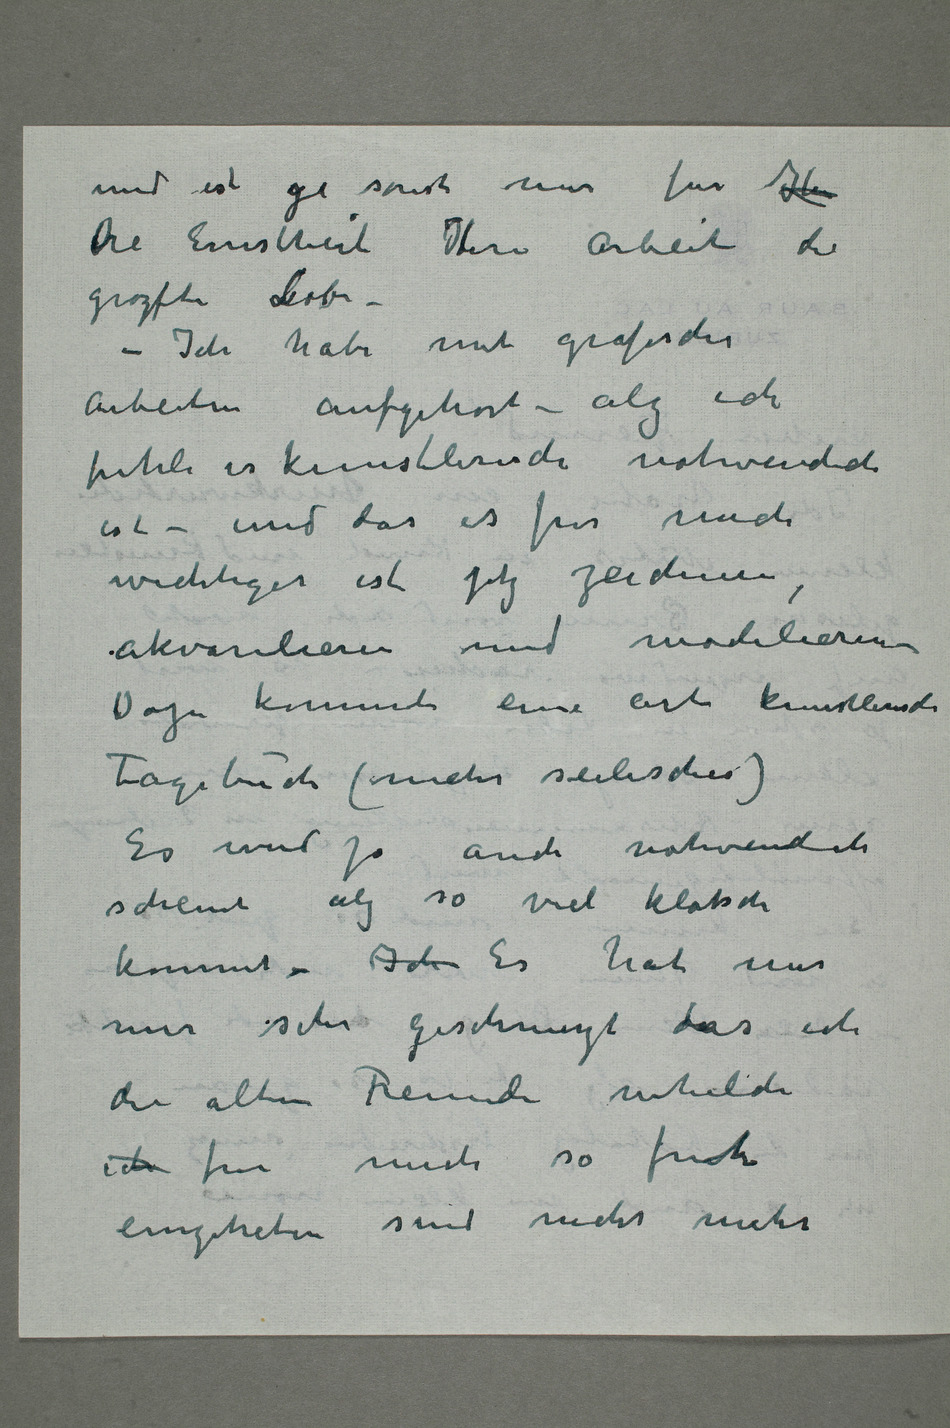 und ist ge sonst nur fur Ihr
die Ernstheit Ihre Arbeit die
grozfte Lobe –
– Ich habe mit grafische
Arbeiten aufgehört – alz ich
fuhle es kunstlerische notwendich
ist – und das es fur mich
wichtiger ist jetz zeichnen,
akvarelieren und modelieren
Dazu kommt eine art kunstlerische
Tagebuch (mehr seelisches)
Es wird ja auch notwendich
scheint alz so viel klatsch
kommt – Ich Es hat nur
mir sehr geschmerzt das ich
die alten Freunde
ich fur mich so
sind nicht mehr